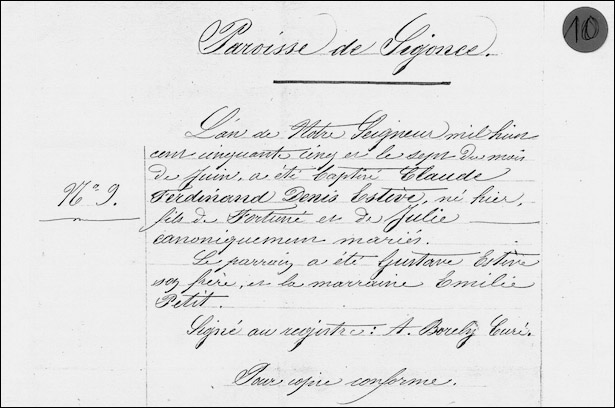 10
Paroisse de Sigonce.
L'an de Notre Seigneur mil huit
cent cinquante cinq et le sept du mois
de Juin, a été baptisé Claude
Ferdinand Denis Estève, né hier,
fils de Fortuné et de Julie
canoniquement mariés.
N° 9.
Le parrain a été Gustave Estève
son frère, et la marraine Emilie
Petit.
Signé au registre: A. Borely Curé.
Pour copie conforme.